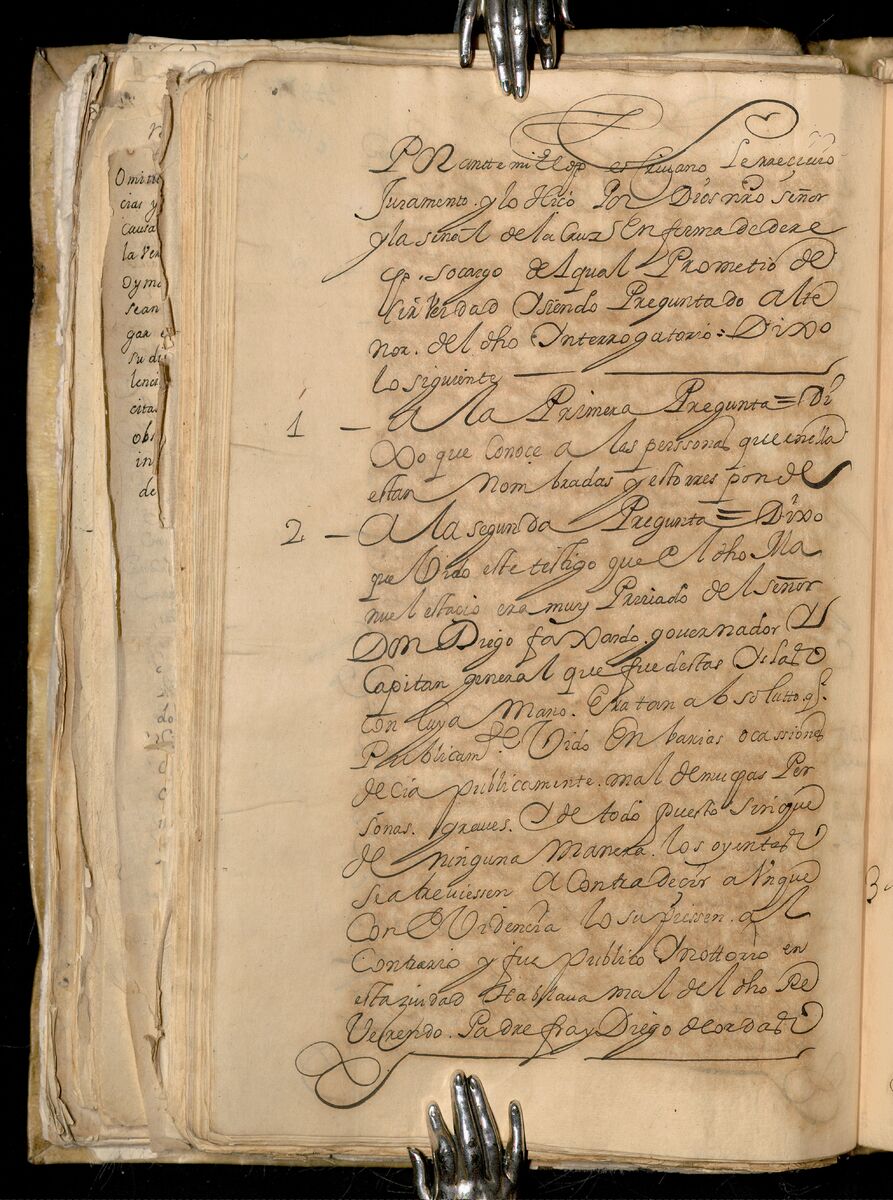 Por antte mi el dho esCruano Se rrecivio
Juramento. y lo Hiço Por Dios nro señor
y la señal de la Cruz En forma de dere
cho. so cargo del qual Prometio de
Cir Verdad Y siendo Preguntado Al te
nor. del dho Ynterrogatorio = Dixo
lo siguiente
1 – A la Primera Pregunta = Di
xo que Conoce a las perssonas que en ella
estan Nombradas y esto rresponde
2 – A la segunda Pregunta = Dixo
que Vido este testigo que el dho Ma
nuel estacio era muy Priuado del señor
Don Diego faxardo. governador Y
Capitan general que fue destas Yslas
Con cuya Mano. Era tan absolutto q.
Publicamte Vido En barias ocassiones
decia publicamente. mal de muchas Per
sonas. graves. Y de todo puesto sin que
de ninguna Manera. los oyentes
se atreuiessen A Contradecir aUnque
Con EVidencia lo supiessen. al
Contrario y fue publico Y nottorio en
esta ziudad Hablaua mal del dho Re
Verendo. Padre fray Diego de ordas
Omitti
cias y
Causa
la Ver
dy me
sean
gar e
su di
lenci
citas
obs
in
de
3